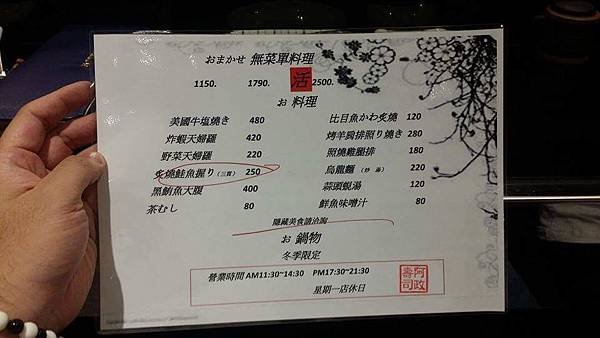 おまかせ 無菜單料理
1150. 1790. 活 2500.
お 料理
美國牛塩燒き 480
炸蝦天婦羅 420
野菜天婦羅 220
炙燒鮭魚握り(三貫) 250
黑鮪魚大腹 400
茶むし 80
比目魚かわ炙燒 120
烤羊肩排照り燒き 280
照燒雞腿排 180
烏龍麵 (炒 湯) 220
蒜頭蜆湯 120
鮮魚味噌汁 80
隱藏美食請洽詢
お 鍋物
冬季限定
營業時間 AM11:30~14:30 PM17:30~21:30
星期一店休日
阿政
壽司